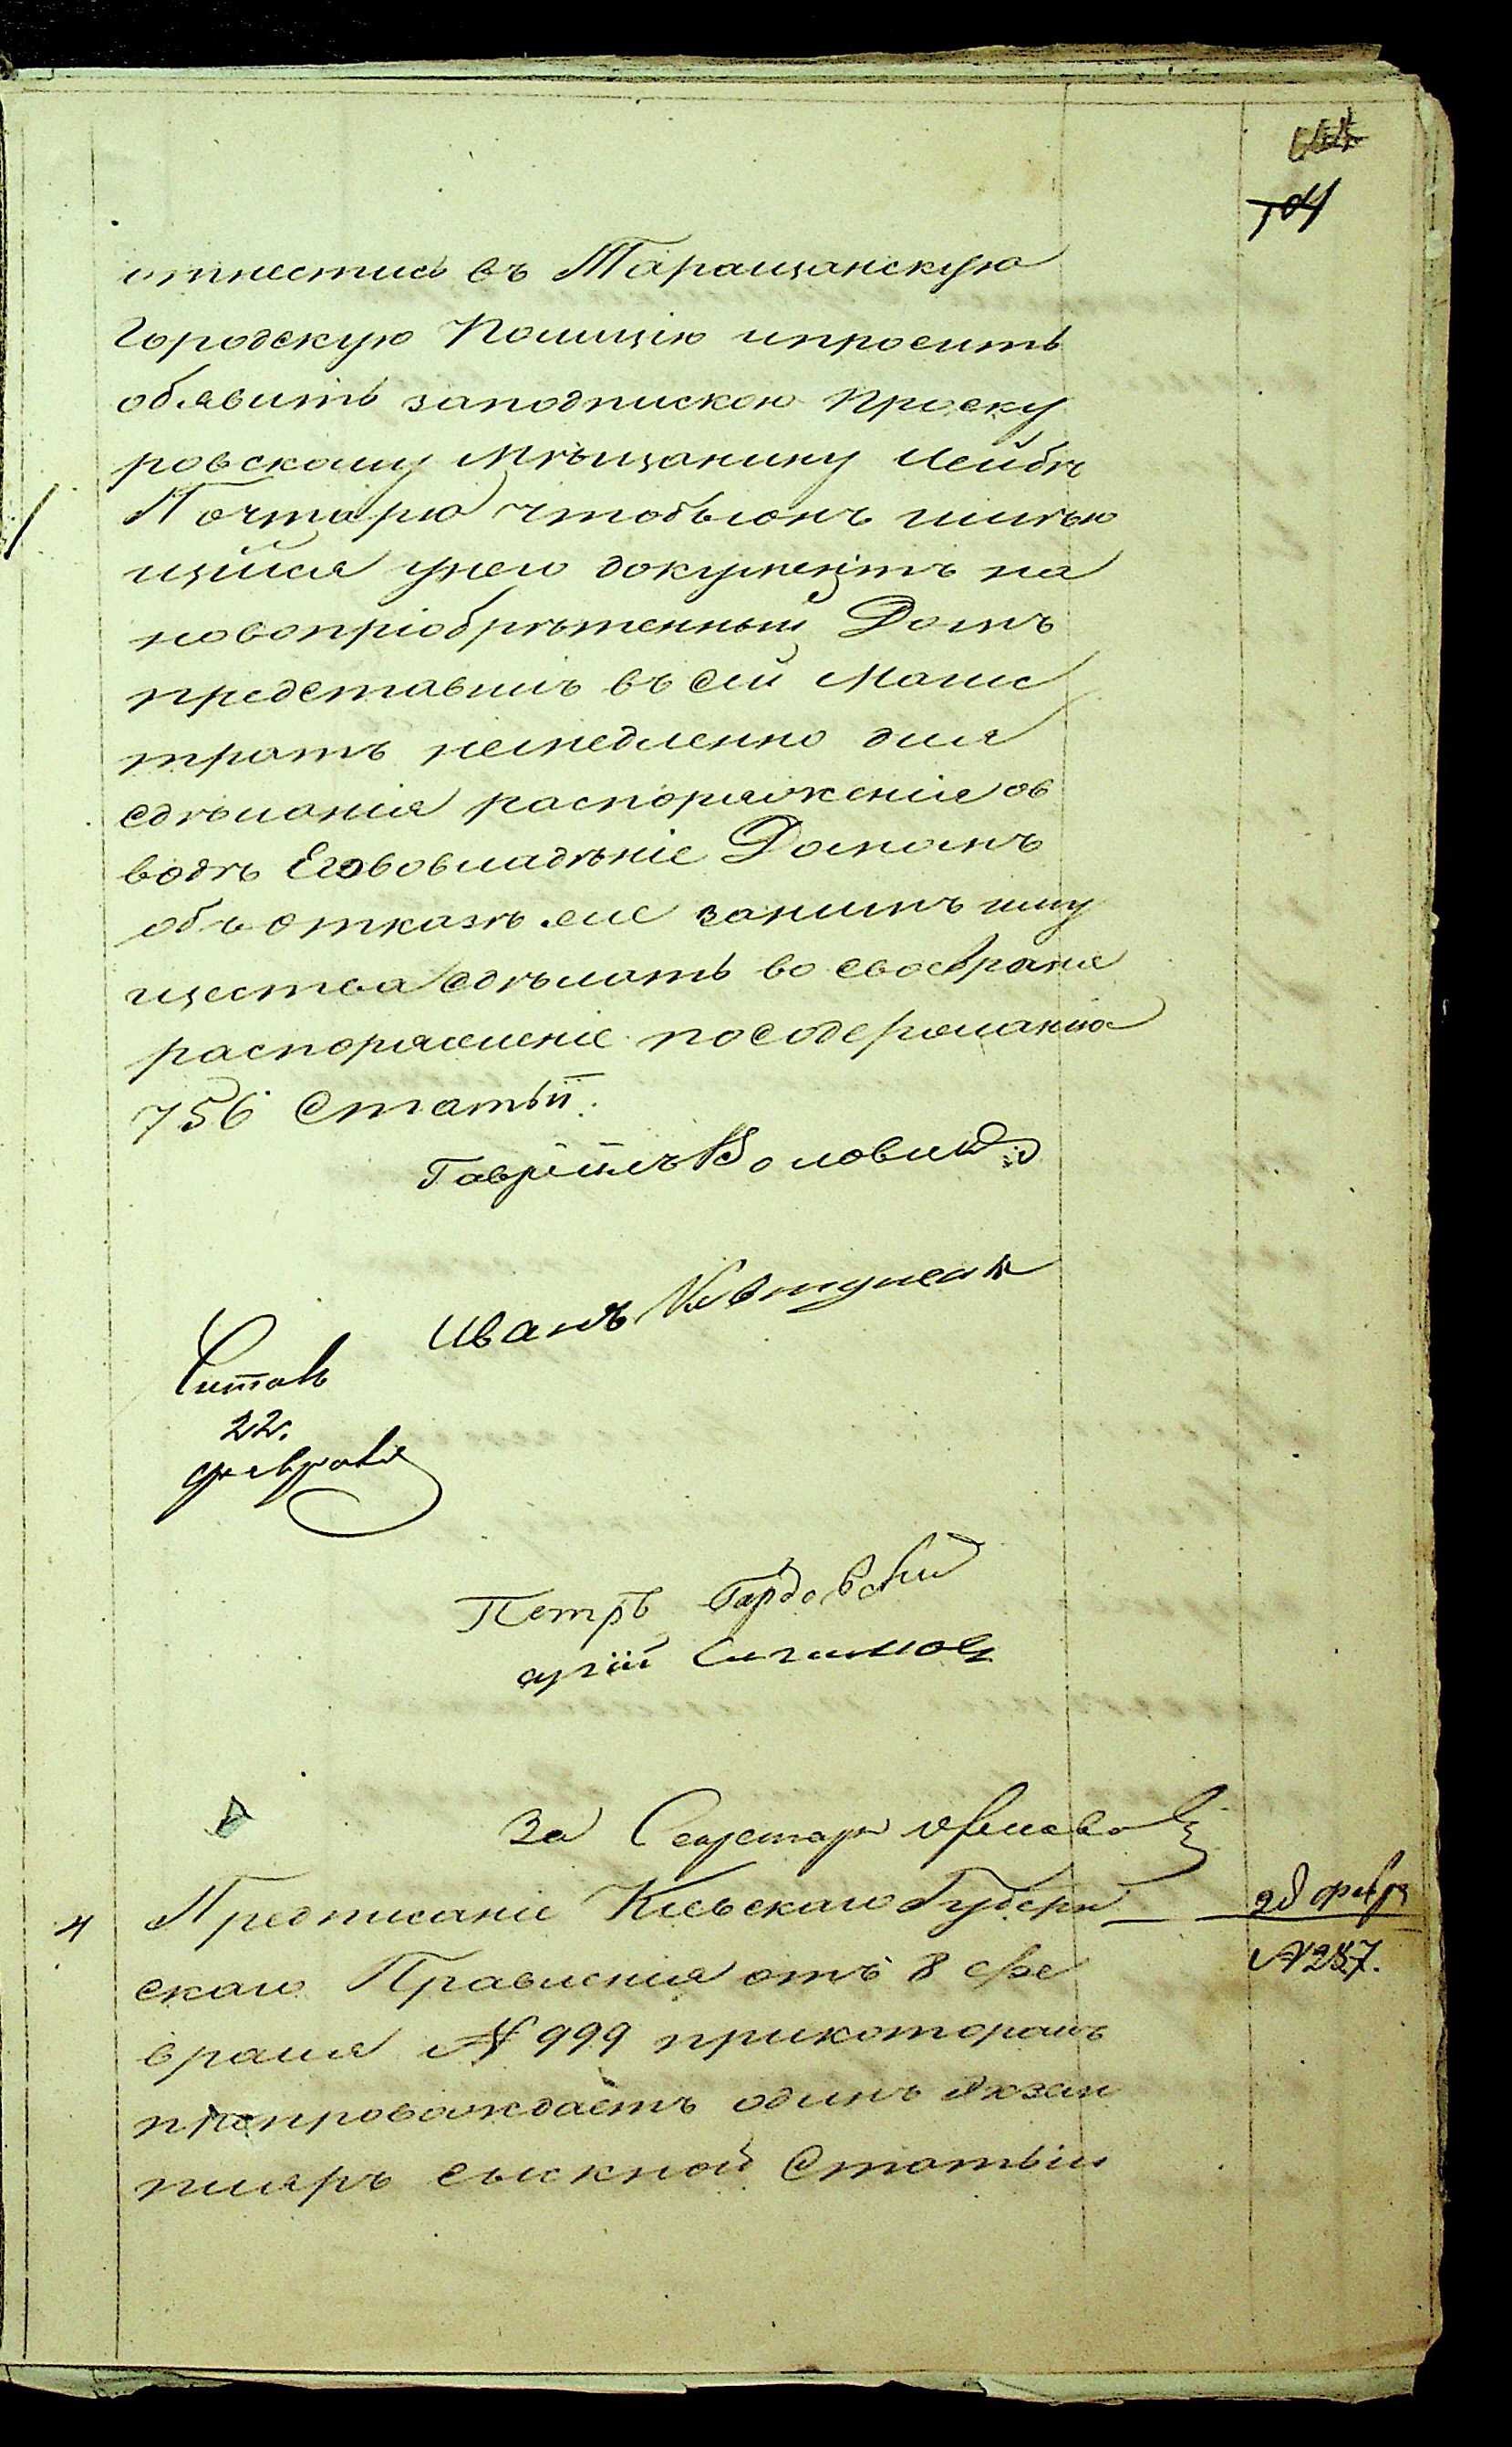 104
отнестись въ Таращанскую
Городскую Полицію ипросить
обявить заподпискою Проску
ровскому Мѣщанину Лейбѣ
Почтарю чтобыонъ имѣю
щійся унего документъ на
новопріобрѣтенный Домъ
представилъ въ сей Маги
тратъ немедленно для
сдѣланія распоряженія ов
водѣ Его вовладѣніе Домомъ
объ отказѣ ... занимъ иму
щества сдѣлать во свое время
распоряженіе посодержанію
756 Статьи.
Гавріилъ
Иванъ
Читалъ
22.
февраля
Петръ
За Секретаря
4 Предписаніе Кіевскаго Губерн
скаго Правленія отъ 8 фе
враля № 999 прикоторомъ
препровождаетъ одинъ Экзем
пляръ сыскной Статьи
20 февр
№ 287.